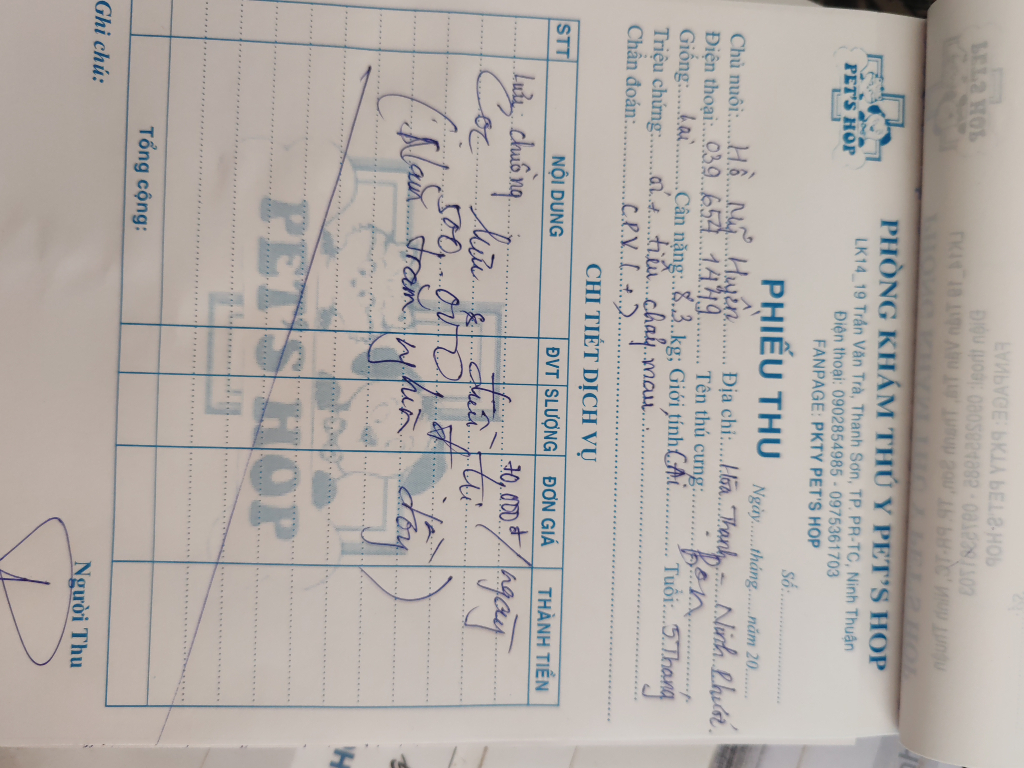 PET'S HOP
PHÒNG KHÁM THÚ Y PET'S HOP
LK14_19 Trần Văn Trà, Thanh Sơn, TP, PR-TC, Ninh Thuận
Điện thoại: 0902854985 - 0975361703
FANPAGE: PKTY PET'S HOP
PHIẾU THU
Số:
Ngày.....tháng.....năm 20......
Chủ nuôi: Hồ Mỹ Huyền Địa chỉ: Hòa Thạnh - Ninh Phước.
Điện thoại: 039 657 1479 Tên thú cưng: Bon
Giống: lai Cân nặng: 8.3 kg; Giới tính: CAi Tuổi: 5 Thang
Triệu chứng: ói + tiêu chảy máu.
Chẩn đoán: C.P.V (+)
CHI TIẾT DỊCH VỤ
STT NỘI DUNG ĐVT SLƯỢNG ĐƠN GIÁ THÀNH TIỀN
lưu chuồng 70,000đ/ngày
Cọc lưu & điều trị
500.000đ
(Năm trăm nghìn đồng)
PET'S HOP
Tổng cộng:
Ghi chú:
Người Thu